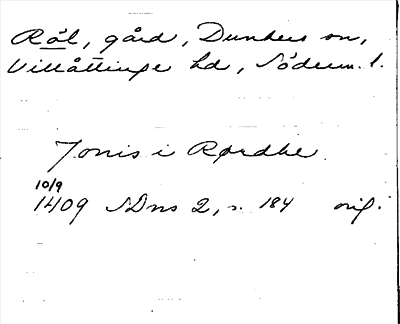 Röl, gård, Dunkers sn,
Villåttinge hd, Söderm. l.
Jonis i Rørdhe
10/9
1409 SDns 2, s. 184 orig.